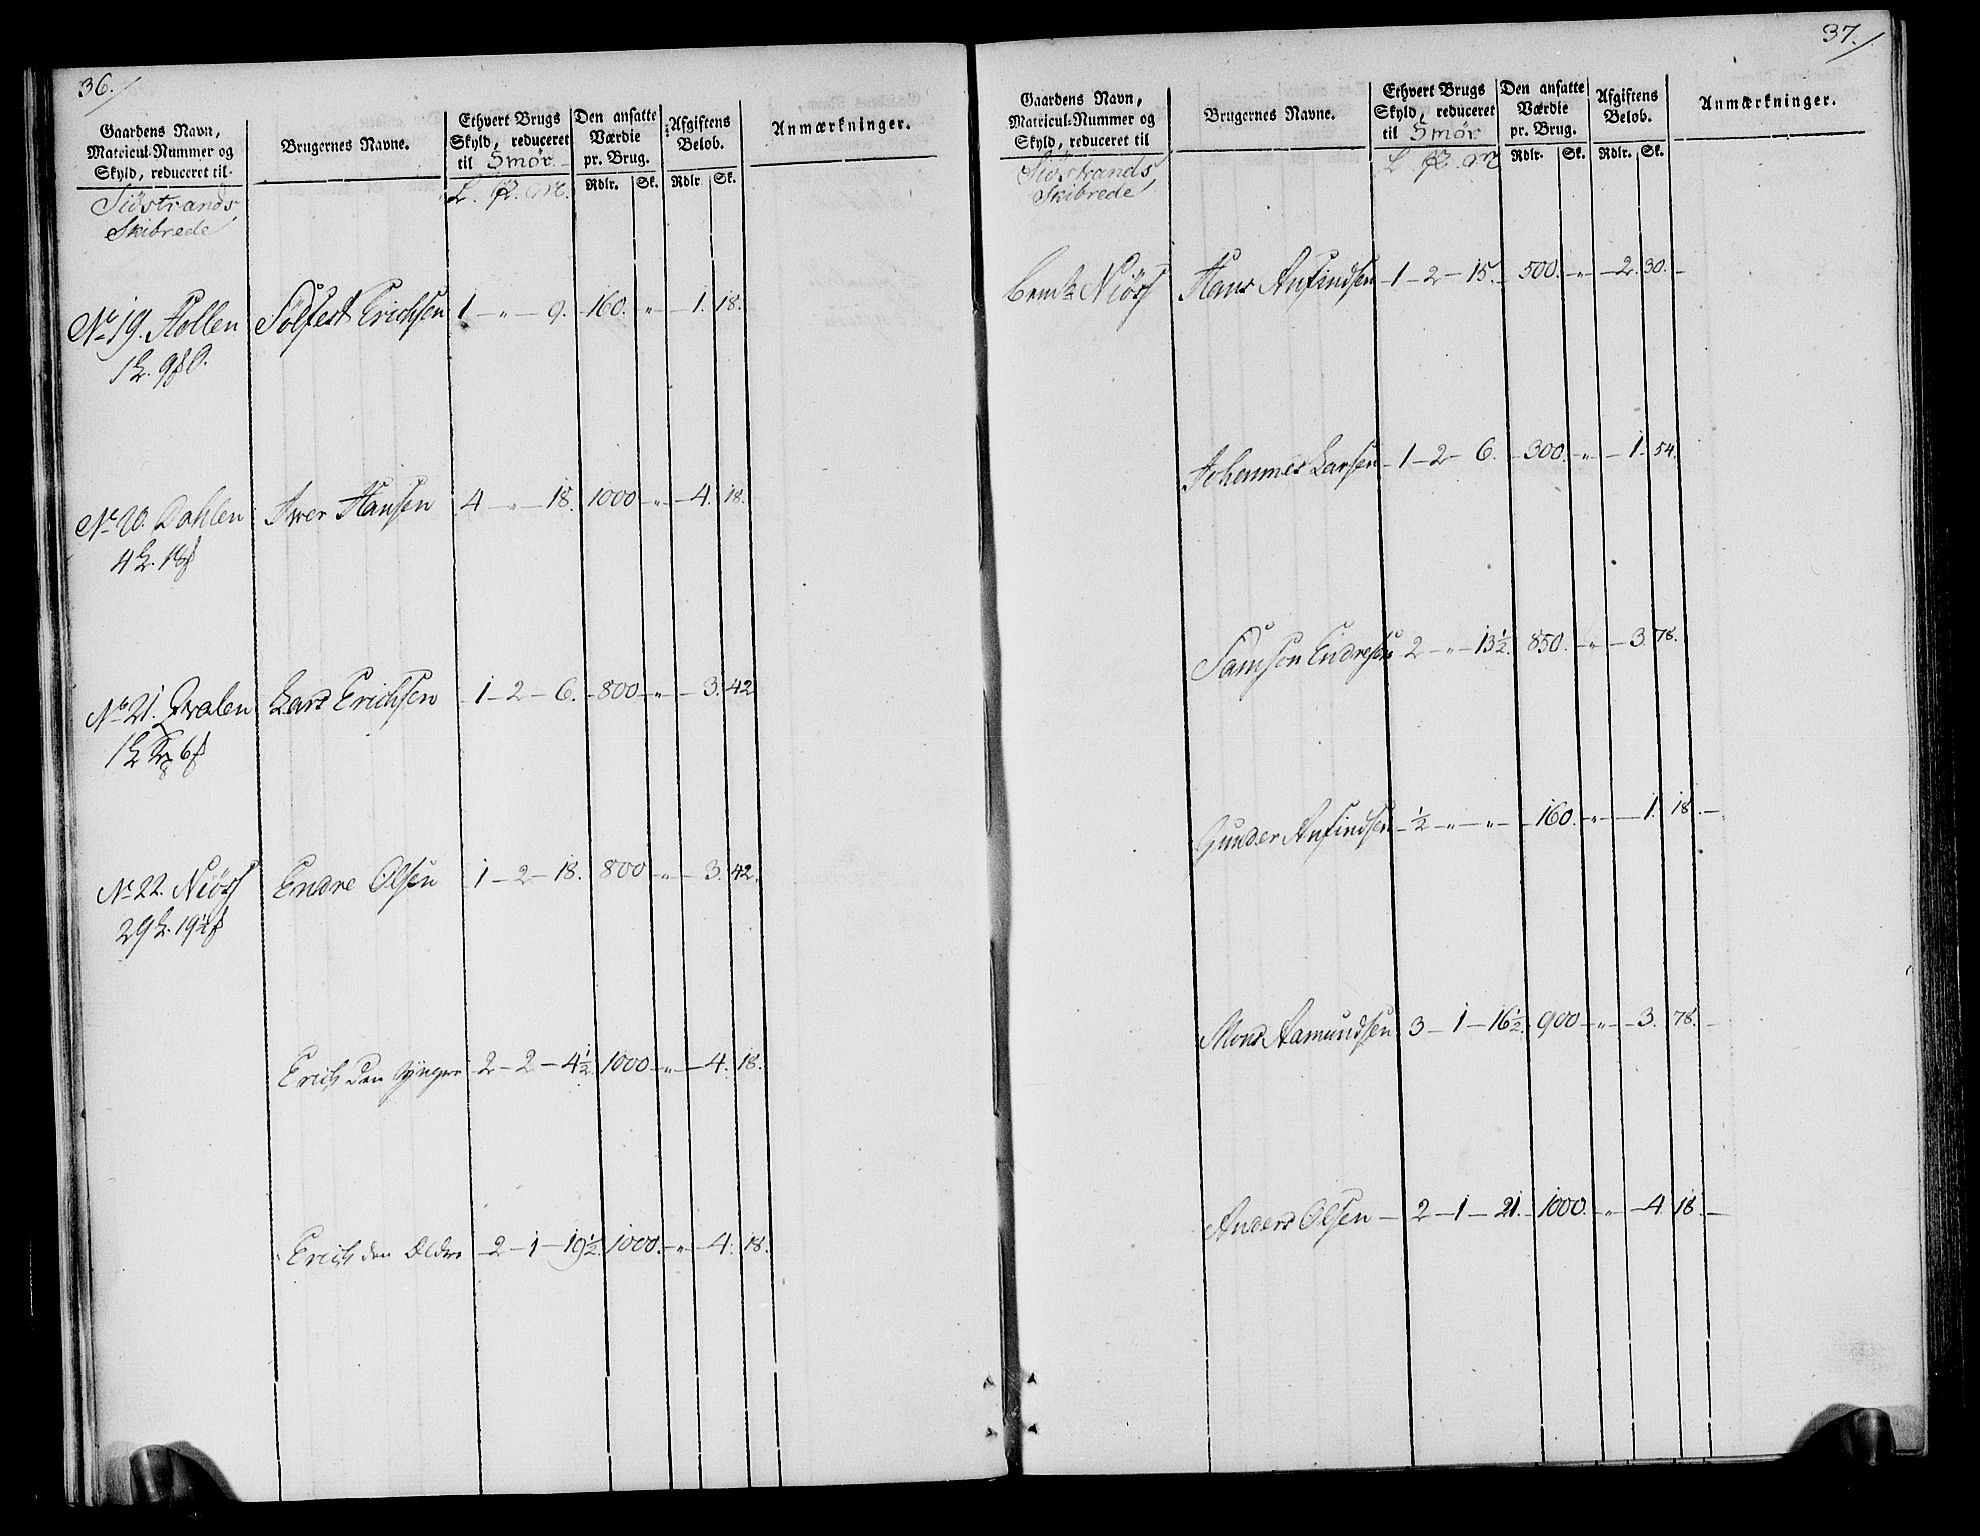 36.
Gaardens Navn,
Matricul-Nummer og
Skyld, reduceret til
Siøstrands
Skibrede
Brugernes Navne.
Ethvert Brugs
Skyld, reduceret
til Smør
L. pd. M.
Den ansatte
Værdie
pr. Brug.
Rdlr. Sk.
Afgiftens
Belob.
Rdlr Sk.
Anmærkninger.
No 19. Hollen Sølfest Erichsen 1 - " - 9. 160. " 1. 18.
No 20. Dahlen Iver Hansen 4 - " - 18. 1000 " 4. 18.
No 21. Qvalen Lars Erichsen 1 - 2 - 6. 800 " 3. 42
No 22. Niøs Endre Olsen 1 - 2 - 18. 800 " 3. 42.
29 L. 19½
Erich den Yngere 2 - 2 - 4½ 1000 " 4. 18.
Erich den Ældre 2 - 1 - 19½ 1000. " 4. 18.
37.
Gaardens Navn,
Matricul-Nummer og
Skyld, reduceret til
Siøstrands
Skibrede
Brugernes Navne.
Ethvert Brugs
Skyld, reduceret
til Smør
L pd. M
Den ansatte
Værdie
pr. Brug.
Rdlr. Sk.
Afgiftens
Belob.
Rdlr. Sk.
Anmærkninger.
Niøs Hans Anfindsen 1 - 2 - 15. 500. " 2. 30.
Johannes Larsen 1 - 2 - 6. 300. " 1. 54.
Samson Endresen 2 - " - 13½. 850. " 3. 78.
Gunder Anfindsen ½ - " - " 160. " 1. 18
Mons Aamundsen 3 - 1 - 16½. 900 " 3. 78.
Anders Olsen 2 - 1 - 21. 1000. " 4. 18